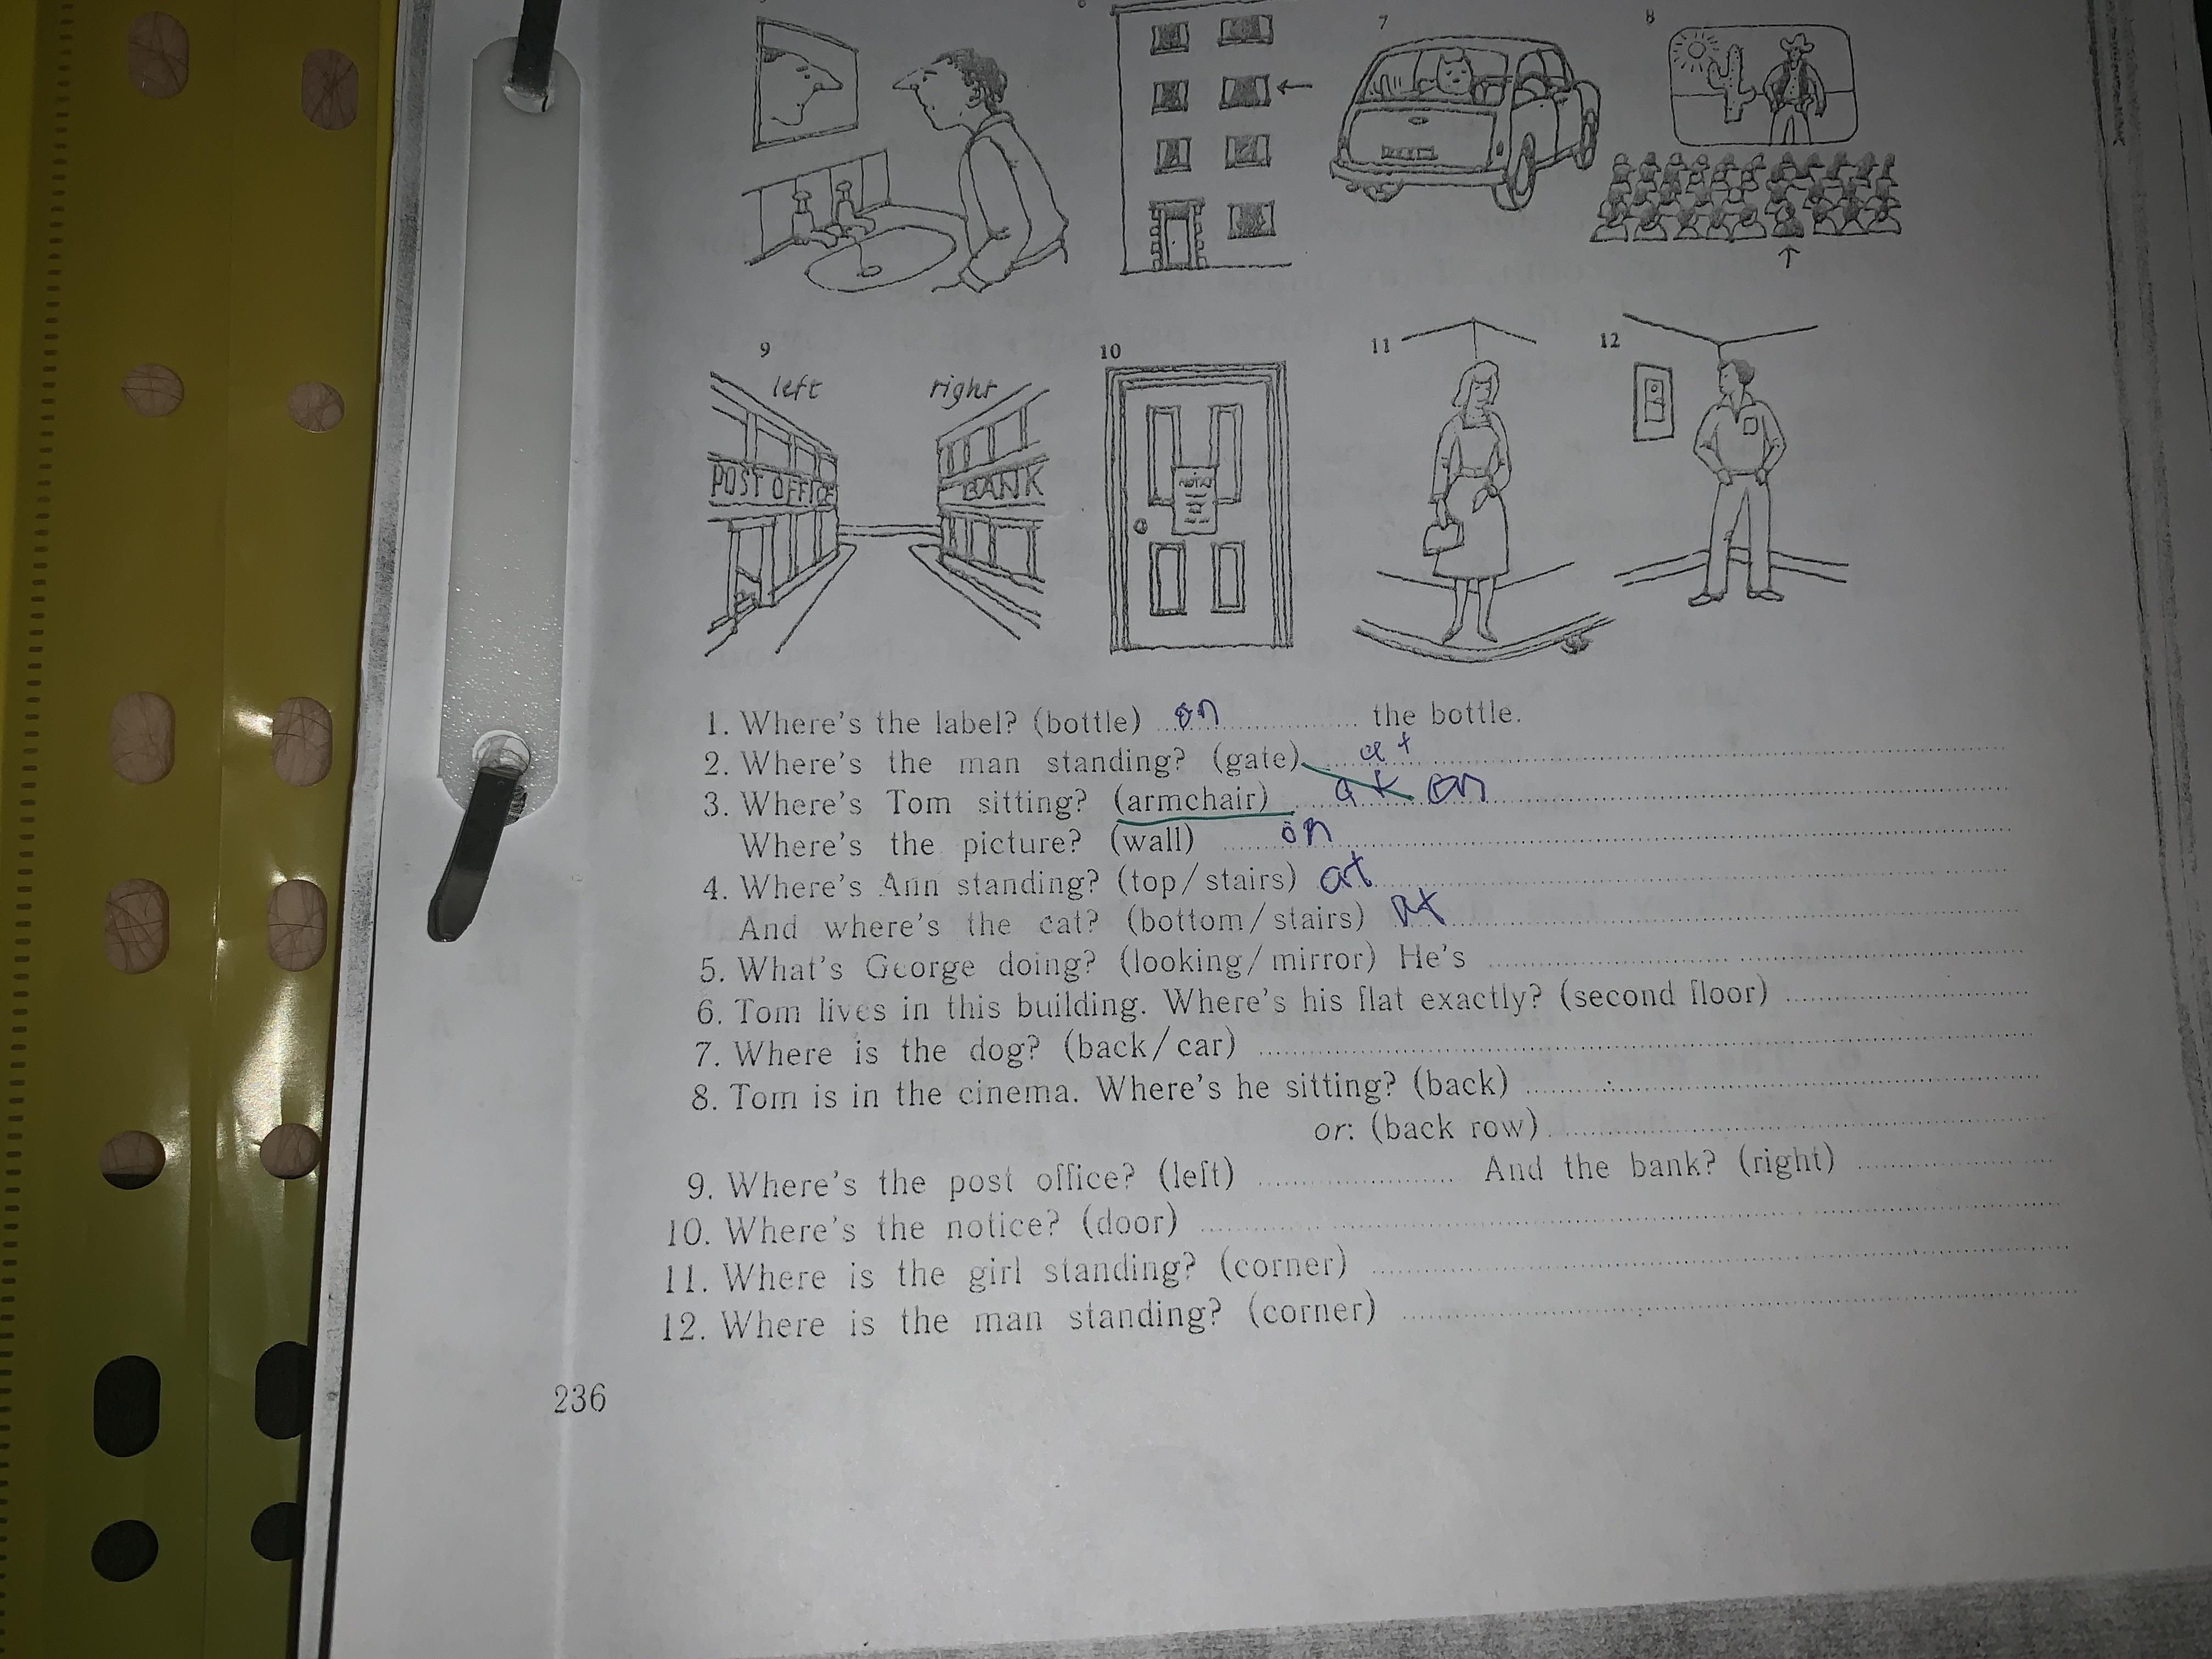 6 7 8
9 10 11 12
left right
POST OFFICE BANK
NOTICE
1. Where's the label? (bottle) on the bottle.
2. Where's the man standing? (gate) at
3. Where's Tom sitting? (armchair) at on
Where's the picture? (wall) on
4. Where's Ann standing? (top/stairs) at
And where's the cat? (bottom/stairs) at
5. What's George doing? (looking/mirror) He's
6. Tom lives in this building. Where's his flat exactly? (second floor)
7. Where is the dog? (back/car)
8. Tom is in the cinema. Where's he sitting? (back)
or: (back row)
9. Where's the post office? (left) And the bank? (right)
10. Where's the notice? (door)
11. Where is the girl standing? (corner)
12. Where is the man standing? (corner)
236